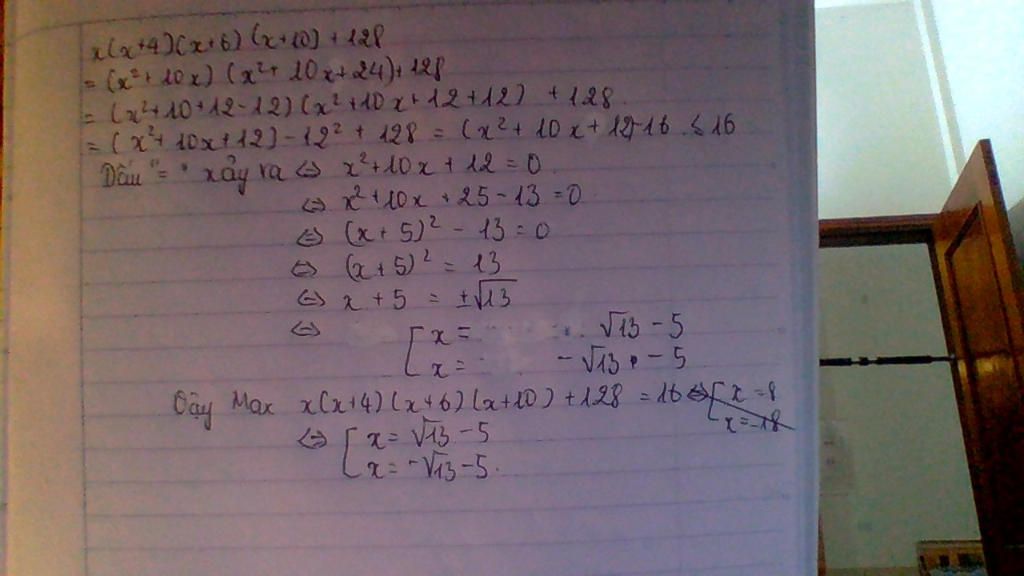 x(x+4)(x+6)(x+10)+128
= (x²+10x)(x²+10x+24)+128
= (x²+10+12-12)(x²+10x+12+12) +128
= (x²+10x+12)-12²+128 = (x²+10x+12)-16 ≤ 16
Dấu "=" xảy ra ⇔ x²+10x+12=0
⇔ x²+10x+25-13=0
⇔ (x+5)²-13=0
⇔ (x+5)²=13
⇔ x+5=±√13
⇔ [ x= √13-5
x= -√13-5
Vậy Max x(x+4)(x+6)(x+10)+128=16 ⇔ [ x=8
x=-18
⇔ [ x=√13-5
x=-√13-5.